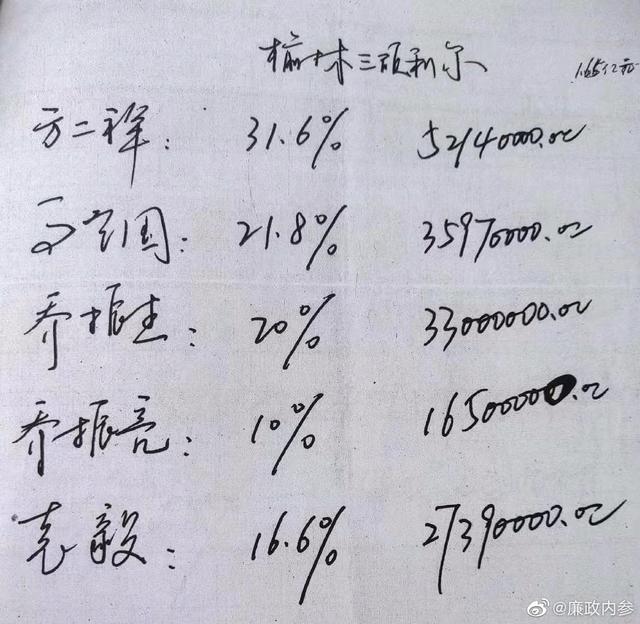 榆林三颐利尔 1.65亿元
方二祥: 31.6% 5214000.00
定国: 21.8% 35970000.00
乔振生: 20% 33000000.00
乔振亮: 10% 16500000.00
毅: 16.6% 27390000.00
@廉政内参